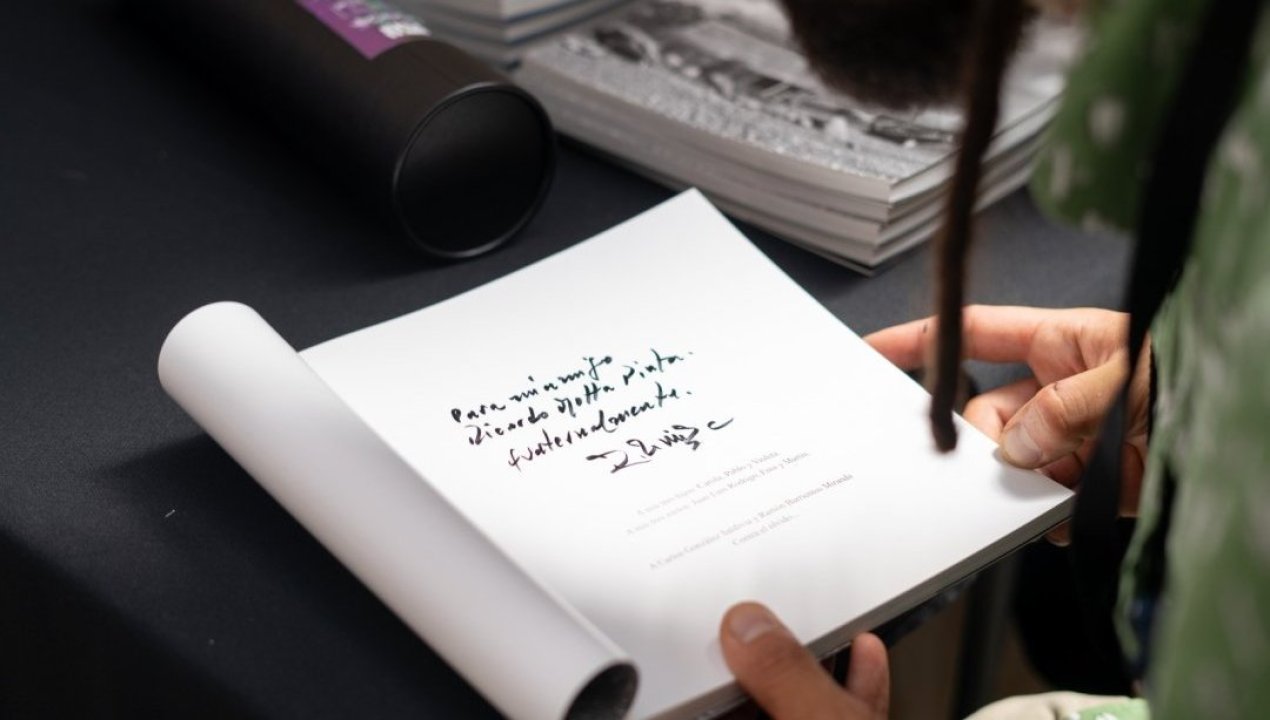 para mi amigo
Ricardo Motta Pinta.
fraternalmente.
A mis tres hijos: Camila, Pablo y Violeta.
A mis tres nietos: Juan Luis Rodrigo, Frida y Martín.
A Carlos González Saldivar y Ramón Barrientos Miranda
Contra el olvido...